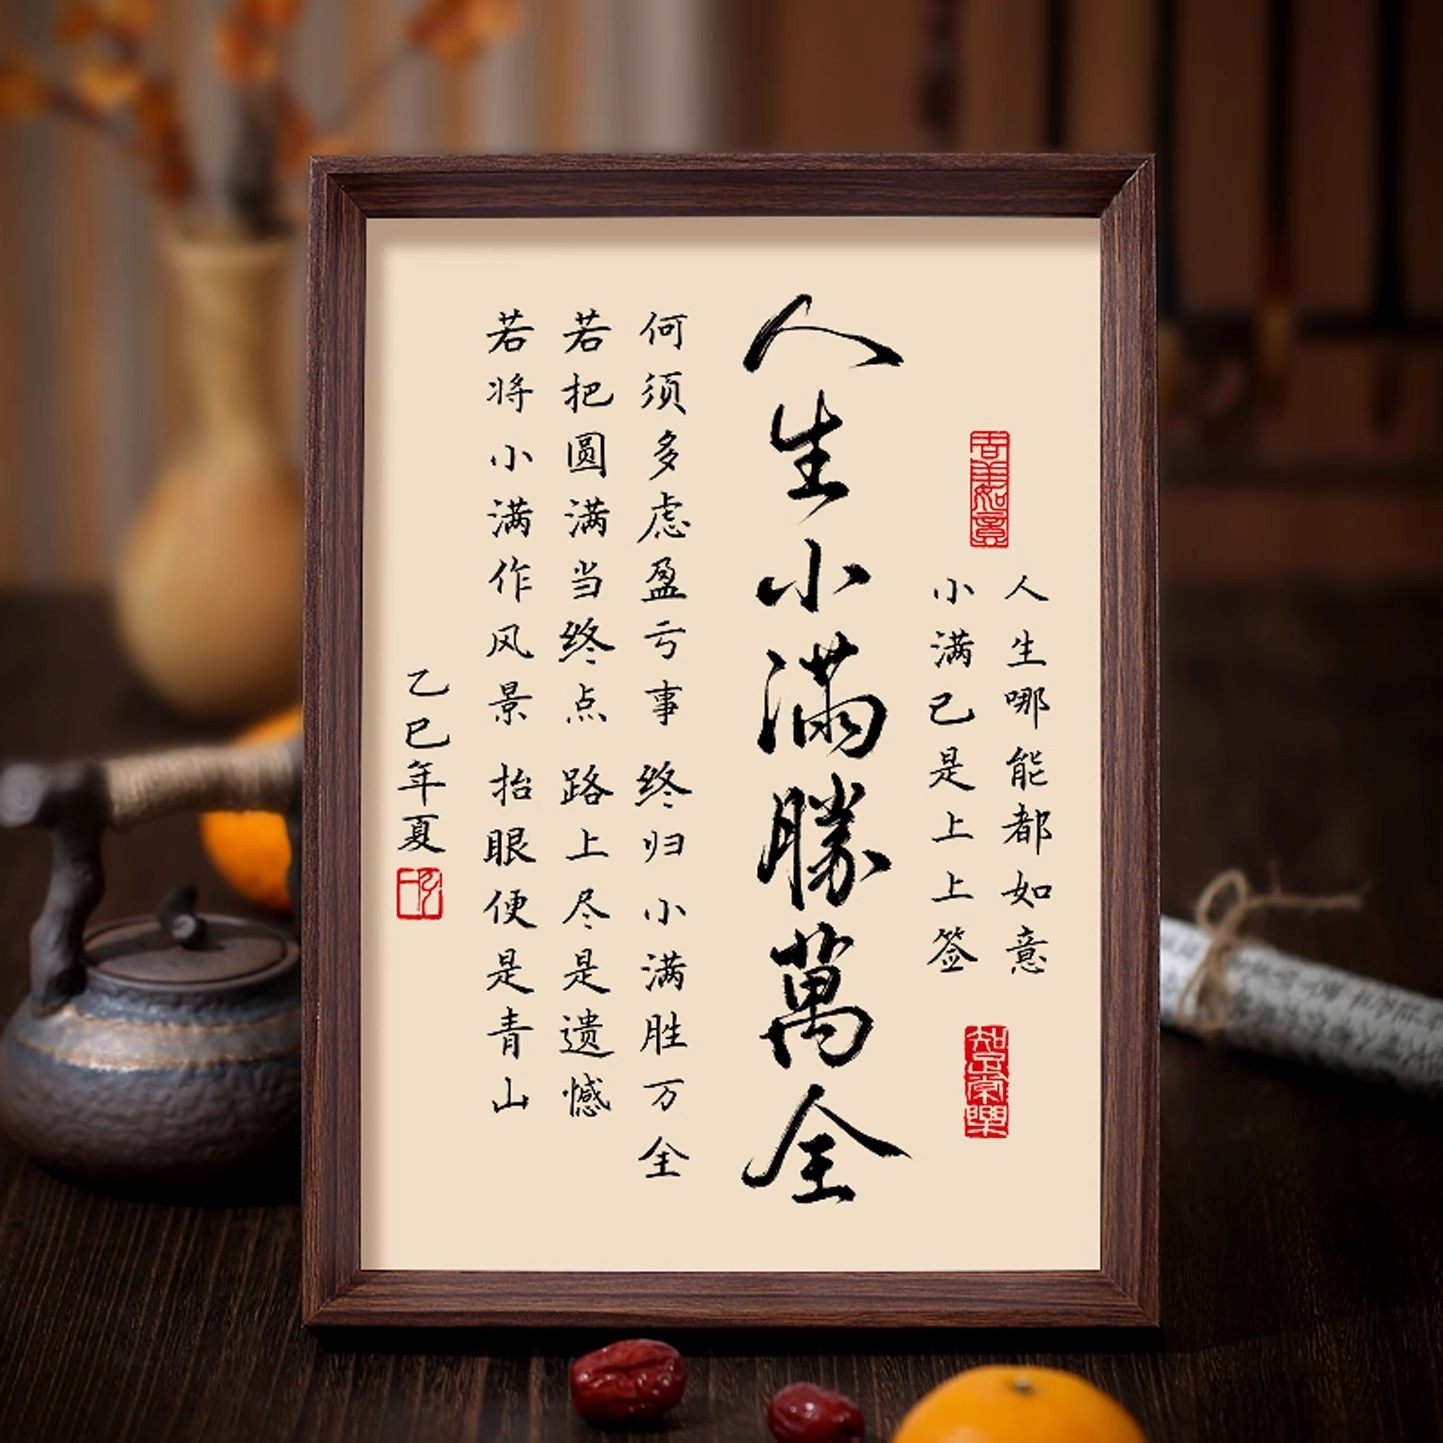 吉羊如意
人生哪能都如意
小满已是上上签
知足常樂
人生小滿勝萬全
何须多虑盈亏事 终归小满胜万全
若把圆满当终点 路上尽是遗憾
若将小满作风景 抬眼便是青山
乙巳年夏